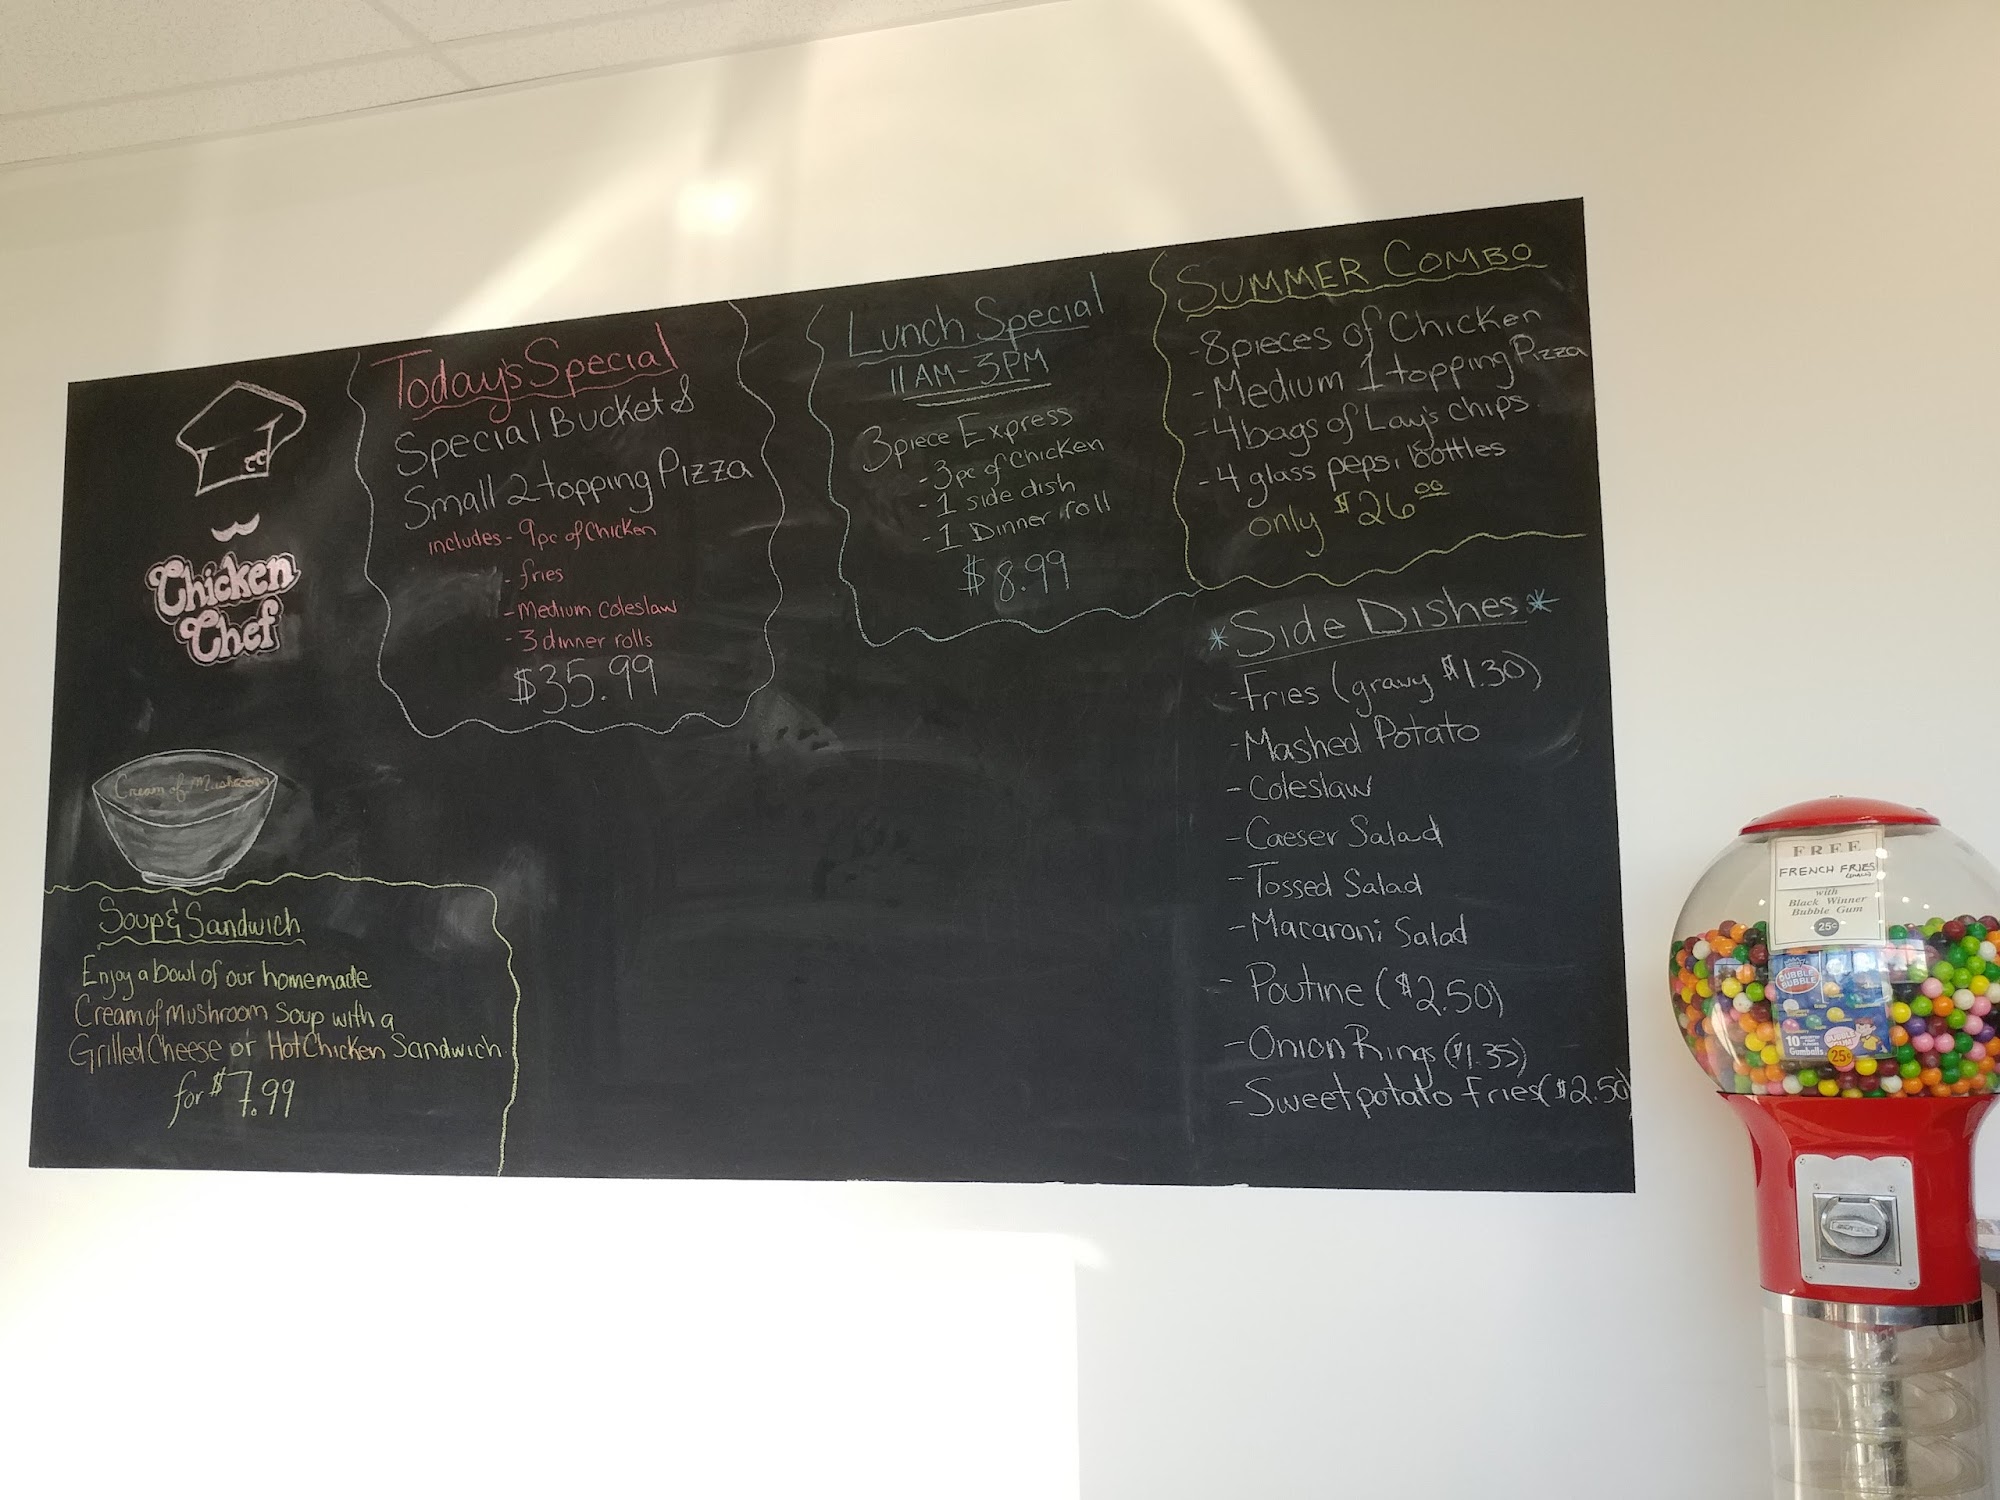 Chicken
Chef
Today's Special
Special Bucket &
Small 2 topping Pizza
includes - 9pc of Chicken
- fries
- Medium Coleslaw
- 3 dinner rolls
$35.99
Lunch Special
11AM-3PM
3 piece Express
- 3pc of Chicken
- 1 side dish
- 1 Dinner roll
$8.99
Summer Combo
- 8 pieces of Chicken
- Medium 1 topping Pizza
- 4 bags of Lay's chips
- 4 glass pepsi bottles
only $26.00
*Side Dishes*
- Fries (gravy $1.30)
- Mashed Potato
- Coleslaw
- Caeser Salad
- Tossed Salad
- Macaroni Salad
- Poutine ($2.50)
- Onion Rings ($1.35)
- Sweet potato fries ($2.50)
Cream of Mushroom
Soup & Sandwich
Enjoy a bowl of our homemade
Cream of Mushroom Soup with a
Grilled Cheese or Hot Chicken Sandwich
for $7.99
FREE
FRENCH FRIES
with
Black Winner
Bubble Gum
25¢
DUBBLE
BUBBLE
10
Gumballs
25¢